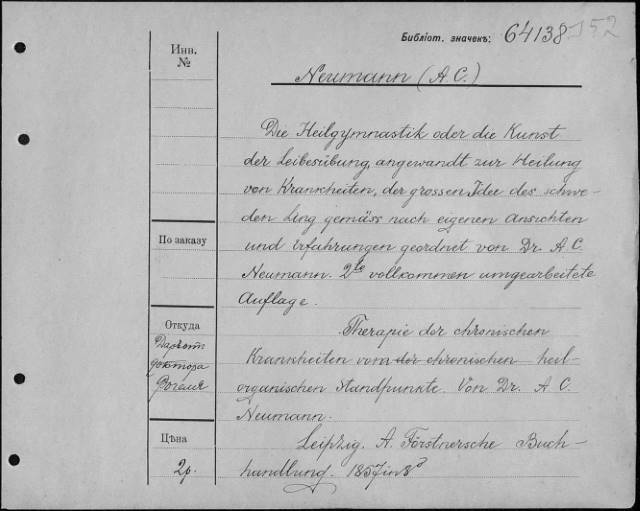 Библіот. значекъ: 64138 152
Инв.
№
Neumann (A.C.)
Die Heilgymnastik oder die Kunst
der Leibesübung, angewandt zur Heilung
von Krankheiten, der grossen Idee des schwe-
den Ling gemäss nach eigenen Ansichten
По заказу
und Erfahrungen geordnet von Dr. A. C.
Neumann. 2te vollkommen umgearbeitete
Auflage.
Откуда
Даръ отъ
доктора
Фогеля
Therapie der chronischen
Krankheiten vom der chronischen heil-
organischen Standpunkte. Von Dr. A. C.
Neumann.
Leipzig. A. Förstnersche Buch-
handlung. 1857 in 8°
Цѣна
2р.